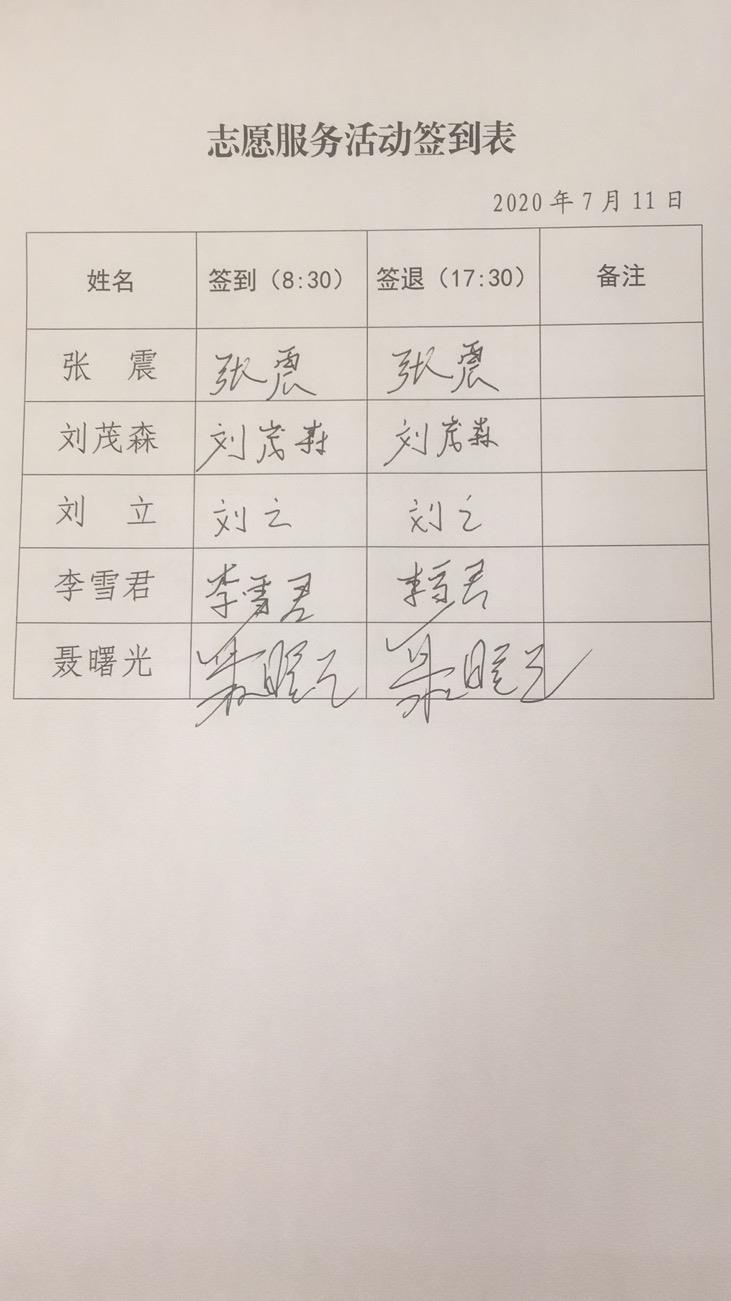 志愿服务活动签到表
2020年7月11日
姓名 签到（8:30） 签退（17:30） 备注
张 震 张震 张震
刘茂森 刘茂森 刘茂森
刘 立 刘立 刘立
李雪君 李雪君 李雪君
聂曙光 聂曙光 聂曙光